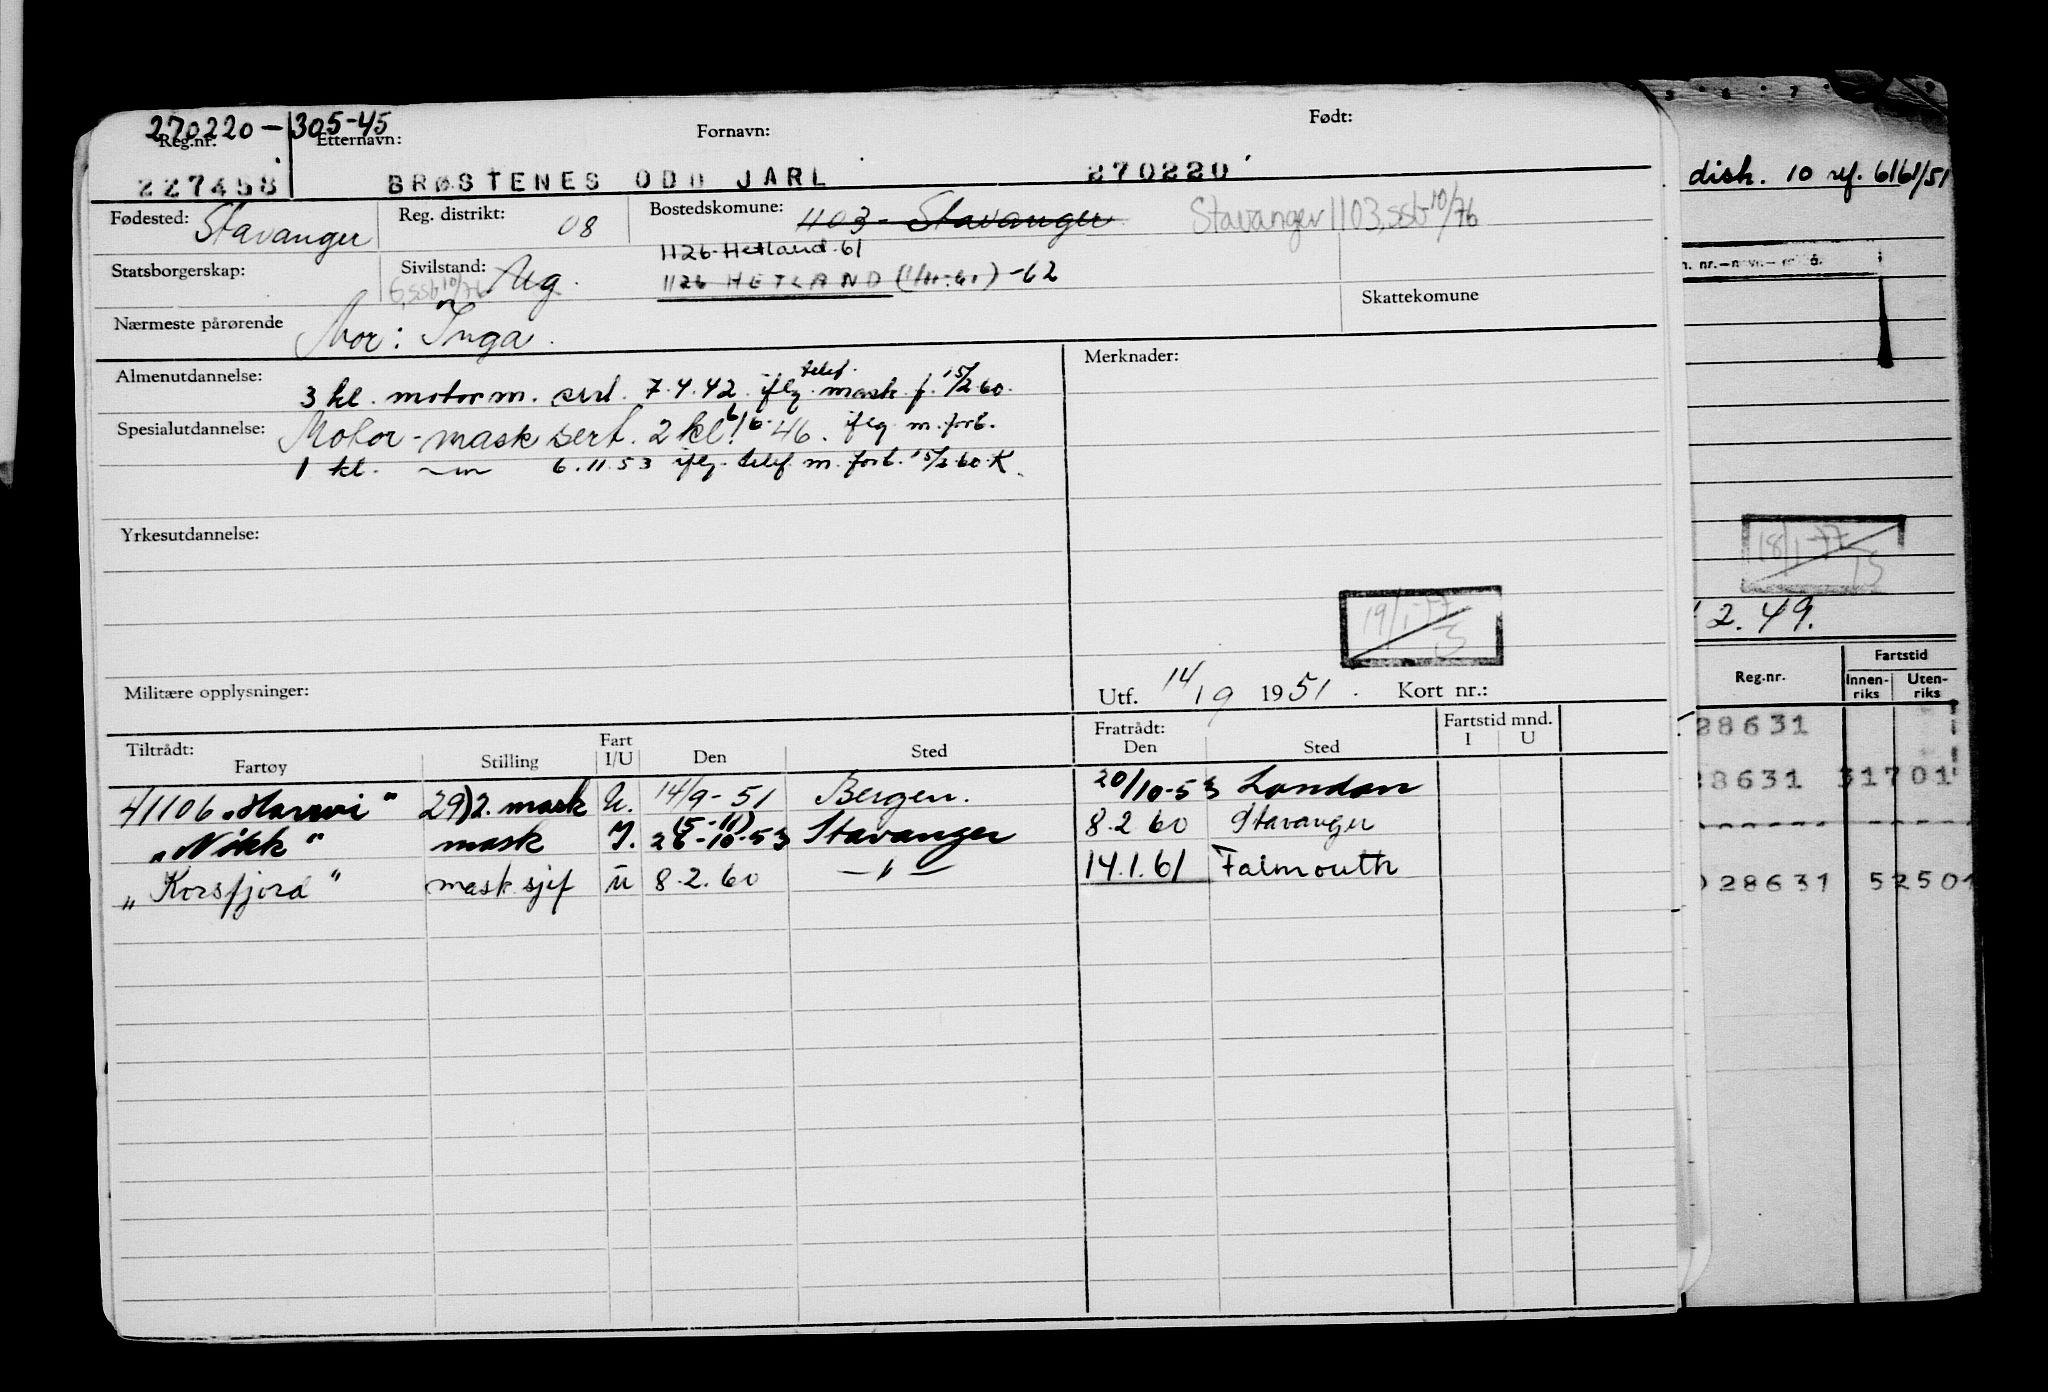 270220-305-45
Reg.nr. Etternavn: Fornavn: Født:
227458 BRØSTENES ODD JARL 270220
Fødested: Stavanger Reg. distrikt: 08 Bostedskomune: 1103 - Stavanger Stavanger 1103, ssb 10/76
1126 Hetland. 61
Statsborgerskap: Sivilstand: Ug. 1126 HETLAND -62
6, ssb 10/76
Skattekomune
Nærmeste pårørende Mor: Inga.
Almenutdannelse: 3 kl. motorm. sert. 7.4.42. iflg. telef. mask. f. 15/2.60. Merknader:
Spesialutdannelse: Motor-mask sert. 2 kl. 6/6-46. iflg m. forb.
1 kl. 6.11.53 iflg. telef m. forb. 15/2.60. K.
Yrkesutdannelse:
19/1-77
Militære opplysninger: Utf. 14/9 1951. Kort nr.:
Tiltrådt: Fratrådt: Fartstid mnd.
Fartøy Stilling Fart I/U Den Sted Den Sted I U
4/1106 29) 2. mask U. 14/9-51 Bergen. 20/10-53 London
(5-11)
"Nikk" mask I. 26-10-53 Stavanger 8.2 60 Stavanger
"Korsfjord" mask.sjef u 8.2.60 — " — 14.1.61 Falmouth
5 6 7
disk. 10 ref. 6161/51
18/1-77
2.49.
Reg.nr. Fartstid
Innen-riks Uten-riks
28631
8631 31701
28631 52501